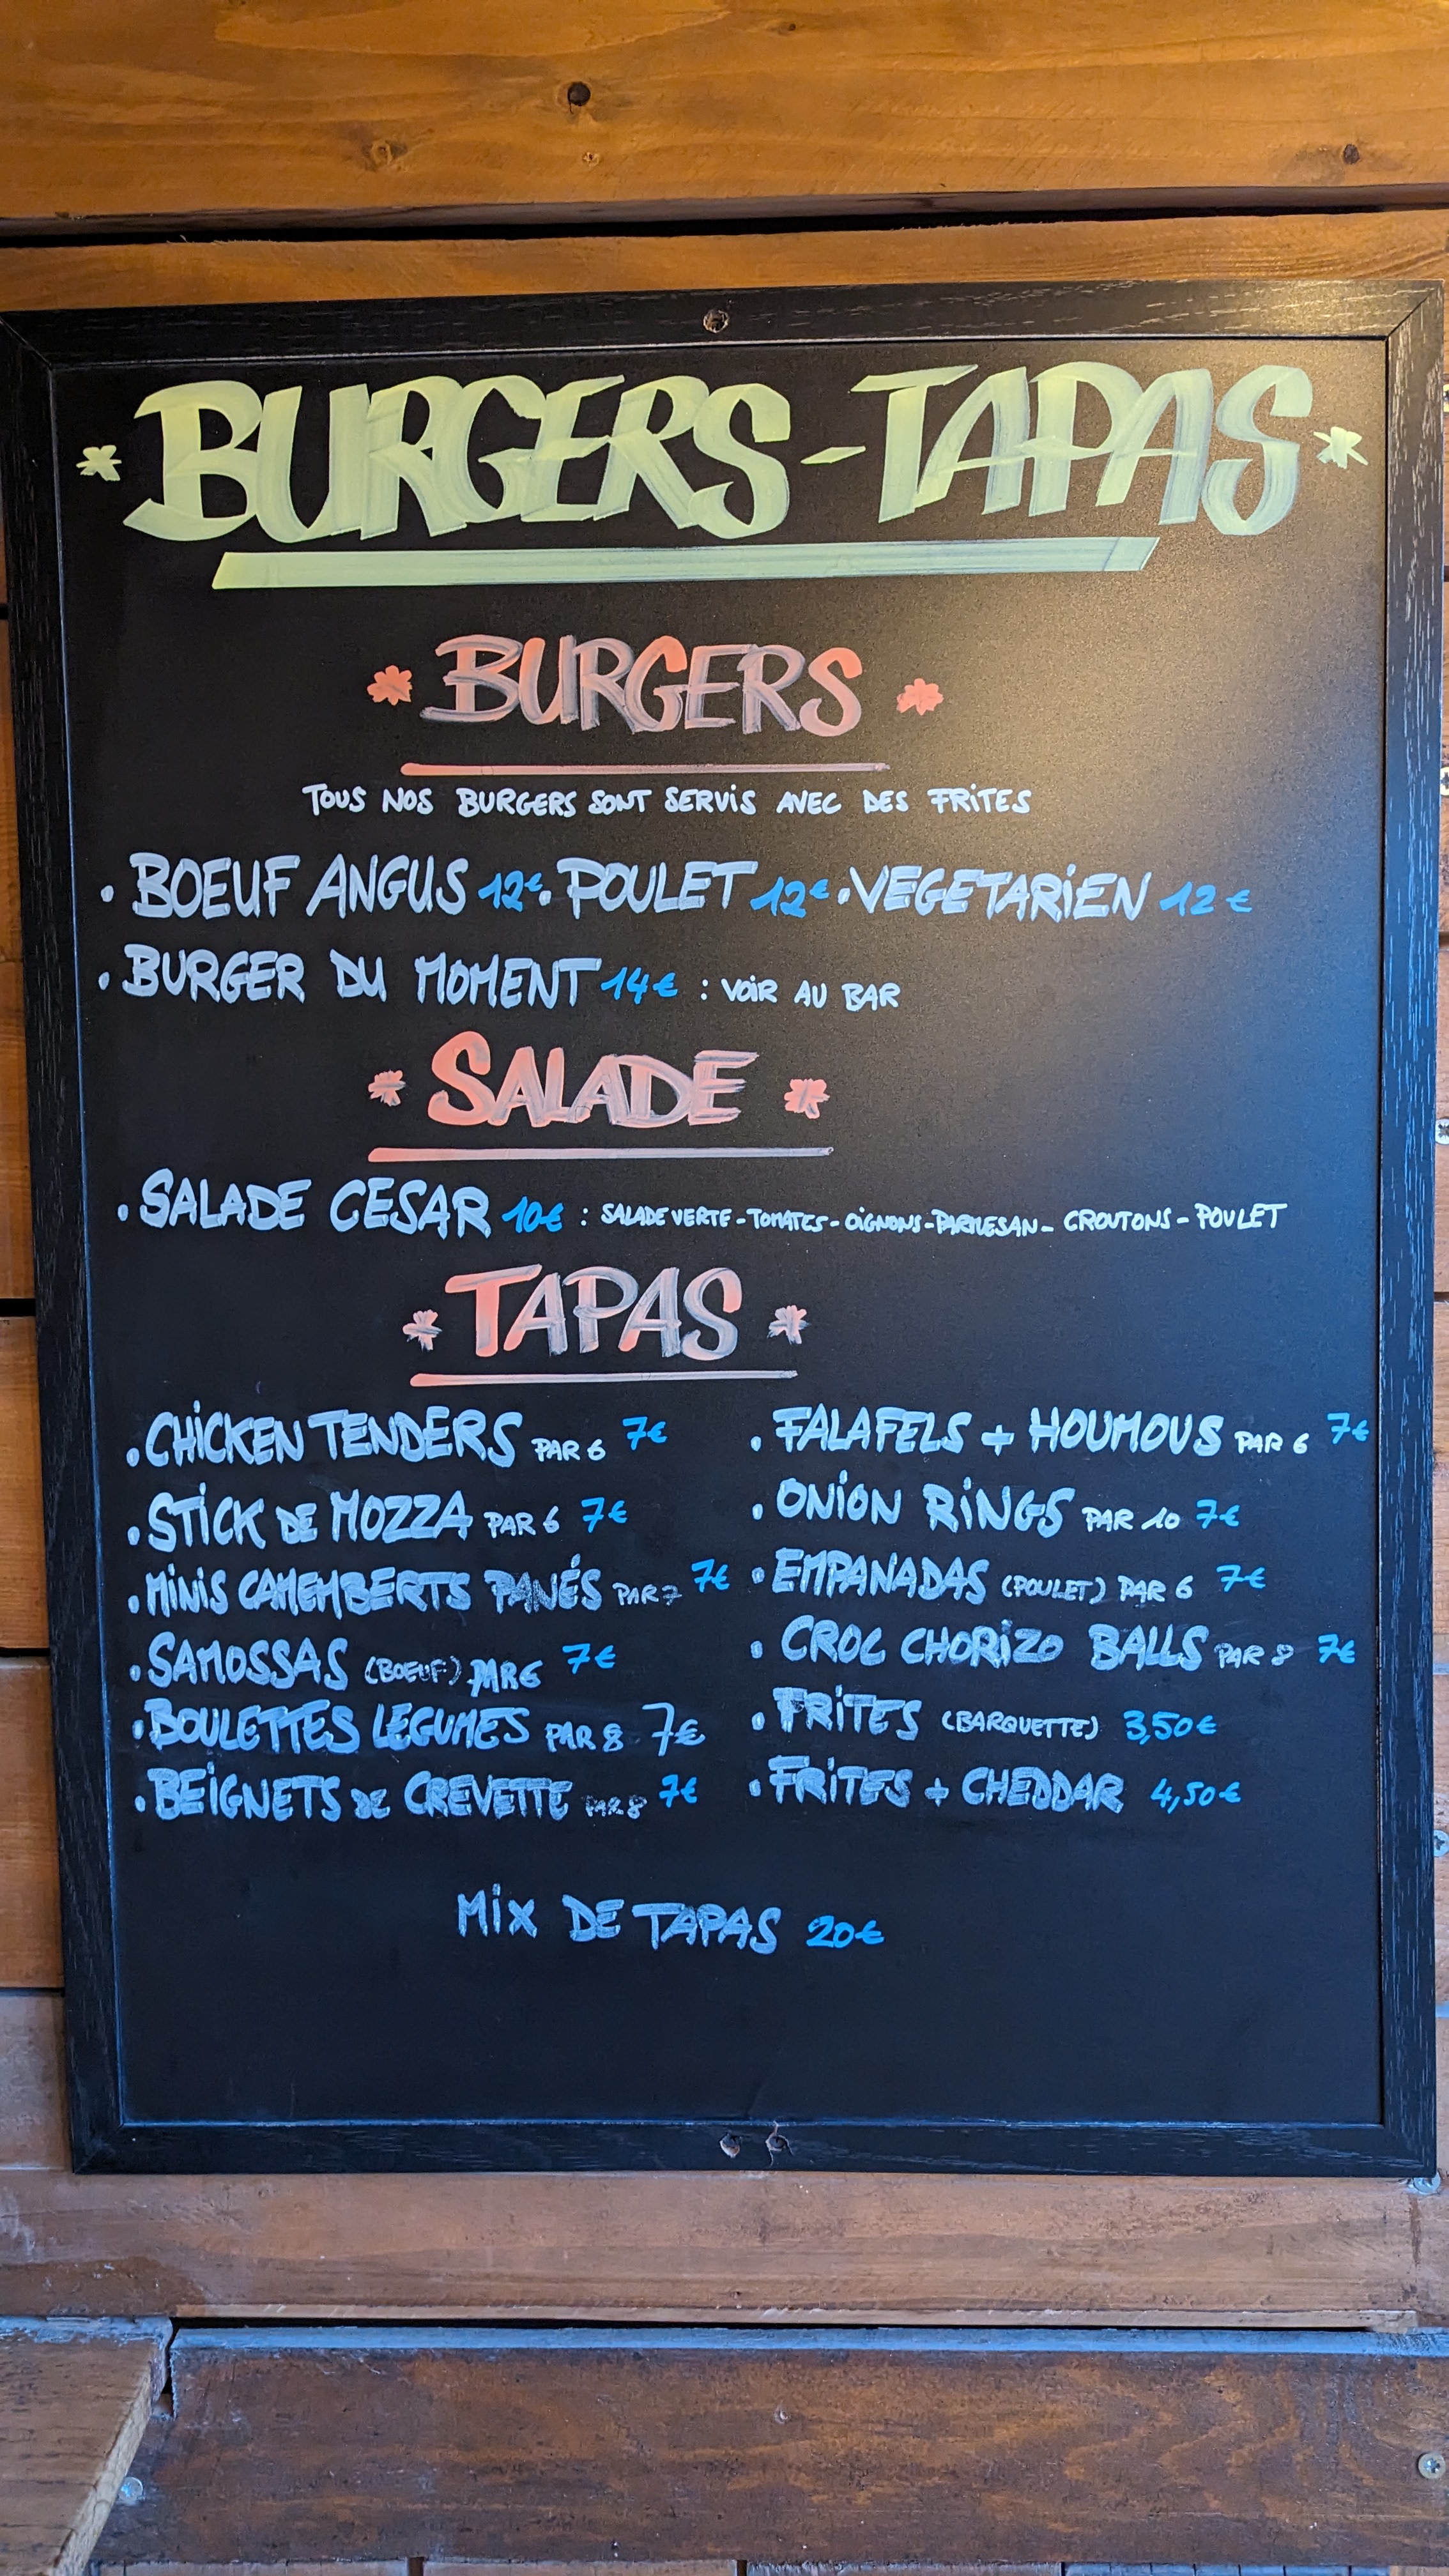 * BURGERS - TAPAS *
* BURGERS *
TOUS NOS BURGERS SONT SERVIS AVEC DES FRITES
• BOEUF ANGUS 12€ • POULET 12€ • VEGETARIEN 12€
• BURGER DU MOMENT 14€ : VOIR AU BAR
* SALADE *
• SALADE CESAR 10€ : SALADE VERTE - TOMATES - OIGNONS - PARMESAN - CROUTONS - POULET
* TAPAS *
• CHICKEN TENDERS PAR 6 7€
• STICK DE MOZZA PAR 6 7€
• MINIS CAMEMBERTS PANÉS PAR 7 7€
• SAMOSSAS (BOEUF) PAR 6 7€
• BOULETTES LEGUMES PAR 8 7€
• BEIGNETS DE CREVETTE PAR 8 7€
• FALAFELS + HOUMOUS PAR 6 7€
• ONION RINGS PAR 10 7€
• EMPANADAS (POULET) PAR 6 7€
• CROC CHORIZO BALLS PAR 8 7€
• FRITES (BARQUETTE) 3,50€
• FRITES + CHEDDAR 4,50€
MIX DE TAPAS 20€